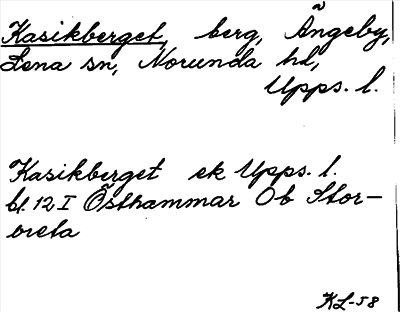 Kasikberget, berg, Ängeby,
Lena sn, Norunda hd,
Upps. l.
Kasikberget ek Upps. l.
bl. 12 I Östhammar Ob Stor-
vreta
KL-58